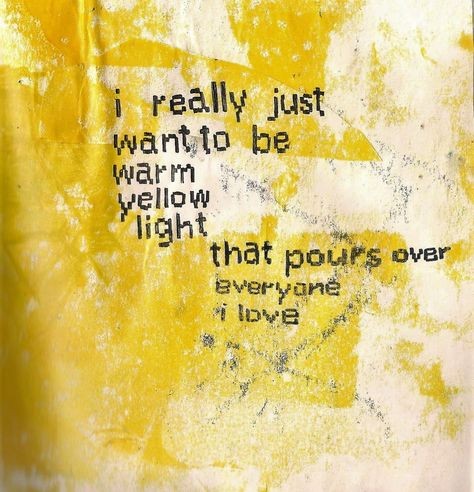 i really just
want to be
warm
yellow
light
that pours over
everyone
i love